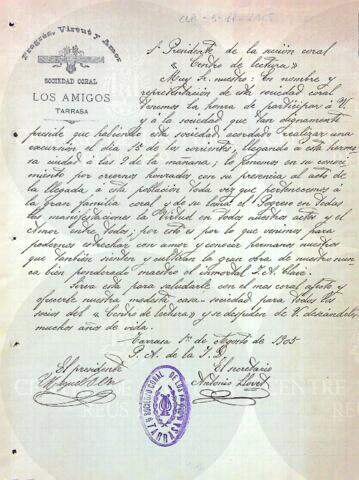 Progrés, Virtut y Amor
SOCIEDAD CORAL
LOS AMIGOS
TARRASA
Sr. Presidente de la sección coral
«Centro de lectura»
Muy Sr. nuestro: En nombre y
representación de esta sociedad coral
tenemos la honra de participar á V.
y á la sociedad que tan dignamente
preside que habiendo esta sociedad acordado realizar una
excursión el dia 15 de los corrientes, llegando á esta hermosa
ciudad á las 2 de la mañana; lo ponemos en su conoci-
miento por creernos honrados con su presencia al acto de
la llegada á esa población toda vez que pertenecemos á
la gran familia coral y de su lema el Progreso en todas
las manifestaciones la Virtud en todos nuestros actos y el
Amor entre todos; por esto es por lo que venimos para
podernos estrechar con amor y conocer hermanos nuestros
que tambien sienten y cultivan la gran obra de nuestro nun-
ca bien ponderado maestro el inmortal J. A. Clavé.
Sirva esta para saludarle con el mas coral afecto y
ofrecerle nuestra modesta casa-sociedad para todos los
socios del «Centro de lectura» y se despiden de V. deseándole
muchos años de vida.
Tarrasa 1º de Agosto de 1905
P. A. de la J. D.
El presidente
El secretario
Antonio Llovet
SOCIEDAD CORAL DE LOS AMIGOS
TARRASA